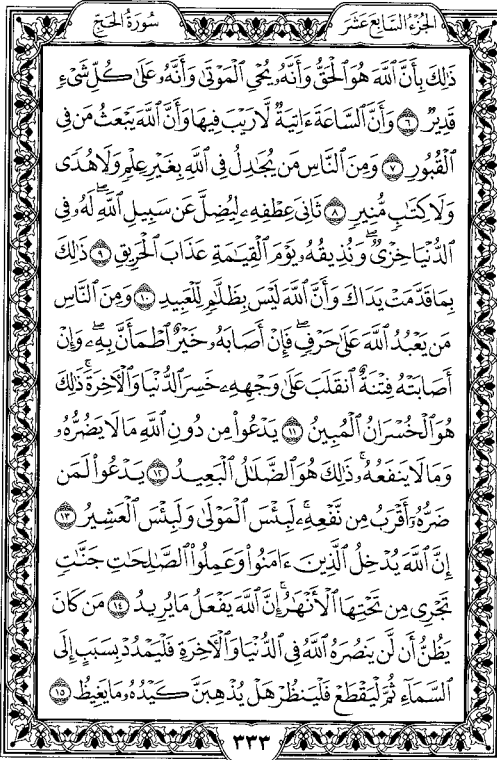 الجزء السابع عشر
سورة الحج
ذَٰلِكَ بِأَنَّ ٱللَّهَ هُوَ ٱلْحَقُّ وَأَنَّهُۥ يُحْىِ ٱلْمَوْتَىٰ وَأَنَّهُۥ عَلَىٰ كُلِّ شَىْءٍ
قَدِيرٌ ٦ وَأَنَّ ٱلسَّاعَةَ ءَاتِيَةٌ لَّا رَيْبَ فِيهَا وَأَنَّ ٱللَّهَ يَبْعَثُ مَن فِى
ٱلْقُبُورِ ٧ وَمِنَ ٱلنَّاسِ مَن يُجَٰدِلُ فِى ٱللَّهِ بِغَيْرِ عِلْمٍ وَلَا هُدًى
وَلَا كِتَٰبٍ مُّنِيرٍ ٨ ثَانِىَ عِطْفِهِۦ لِيُضِلَّ عَن سَبِيلِ ٱللَّهِ ۖ لَهُۥ فِى
ٱلدُّنْيَا خِزْىٌ ۖ وَنُذِيقُهُۥ يَوْمَ ٱلْقِيَٰمَةِ عَذَابَ ٱلْحَرِيقِ ٩ ذَٰلِكَ
بِمَا قَدَّمَتْ يَدَاكَ وَأَنَّ ٱللَّهَ لَيْسَ بِظَلَّٰمٍ لِّلْعَبِيدِ ١٠ وَمِنَ ٱلنَّاسِ
مَن يَعْبُدُ ٱللَّهَ عَلَىٰ حَرْفٍ ۖ فَإِنْ أَصَابَهُۥ خَيْرٌ ٱطْمَأَنَّ بِهِۦ ۖ وَإِنْ
أَصَابَتْهُ فِتْنَةٌ ٱنقَلَبَ عَلَىٰ وَجْهِهِۦ خَسِرَ ٱلدُّنْيَا وَٱلْءَاخِرَةَ ۚ ذَٰلِكَ
هُوَ ٱلْخُسْرَانُ ٱلْمُبِينُ ١١ يَدْعُوا۟ مِن دُونِ ٱللَّهِ مَا لَا يَضُرُّهُۥ
وَمَا لَا يَنفَعُهُۥ ۚ ذَٰلِكَ هُوَ ٱلضَّلَٰلُ ٱلْبَعِيدُ ١٢ يَدْعُوا۟ لَمَن
ضَرُّهُۥٓ أَقْرَبُ مِن نَّفْعِهِۦ ۚ لَبِئْسَ ٱلْمَوْلَىٰ وَلَبِئْسَ ٱلْعَشِيرُ ١٣
إِنَّ ٱللَّهَ يُدْخِلُ ٱلَّذِينَ ءَامَنُوا۟ وَعَمِلُوا۟ ٱلصَّٰلِحَٰتِ جَنَّٰتٍ
تَجْرِى مِن تَحْتِهَا ٱلْأَنْهَٰرُ ۚ إِنَّ ٱللَّهَ يَفْعَلُ مَا يُرِيدُ ١٤ مَن كَانَ
يَظُنُّ أَن لَّن يَنصُرَهُ ٱللَّهُ فِى ٱلدُّنْيَا وَٱلْءَاخِرَةِ فَلْيَمْدُدْ بِسَبَبٍ إِلَى
ٱلسَّمَآءِ ثُمَّ لْيَقْطَعْ فَلْيَنظُرْ هَلْ يُذْهِبَنَّ كَيْدُهُۥ مَا يَغِيظُ ١٥
٣٣٣